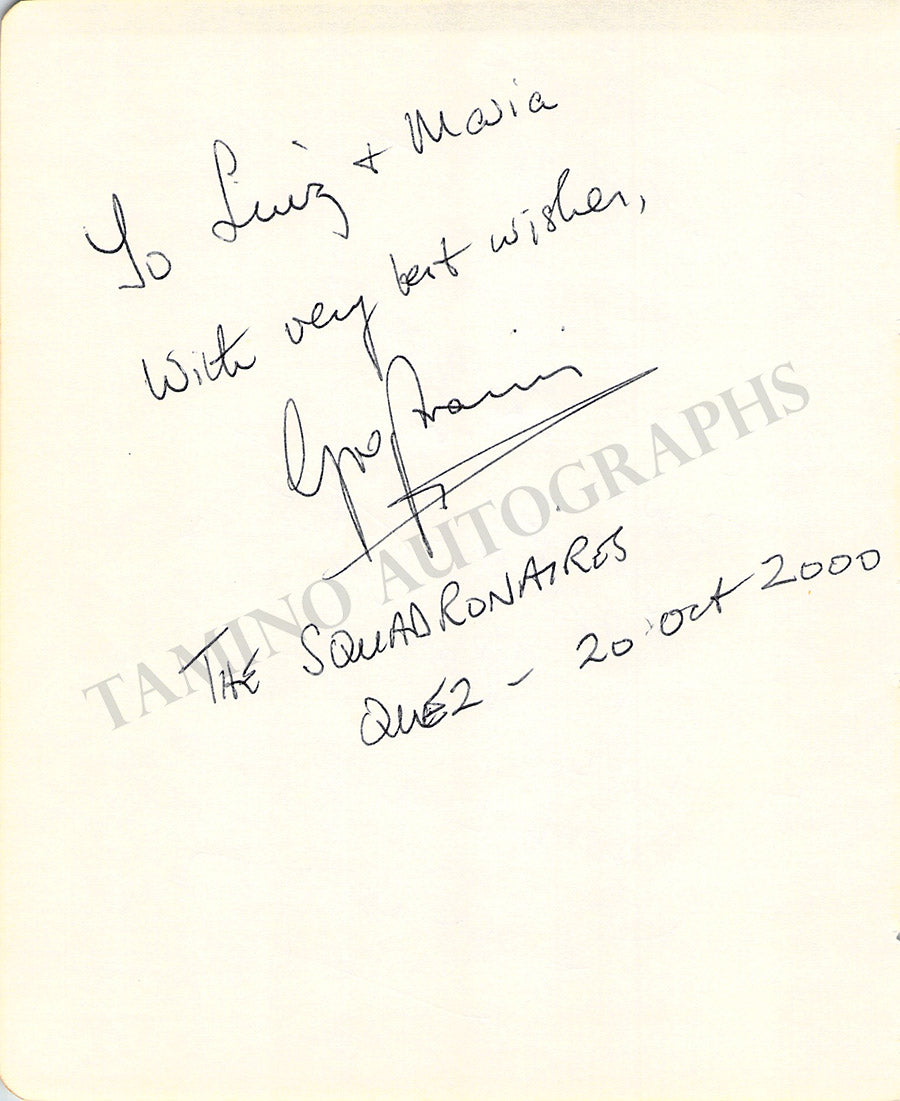 To Luiz + Maria
With very best wishes,
TAMINO AUTOGRAPHS
THE SQUADRONAIRES
QUE2 - 20 oct 2000